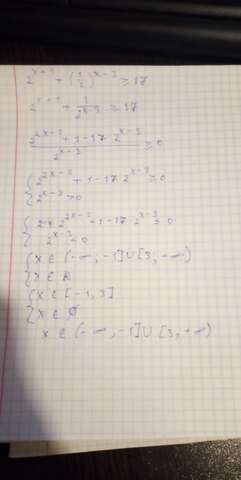 2^{x+1} + (1/2)^{x-3} ≥ 17
2^{x+1} + 1/2^{x-3} ≥ 17
(2^{2x-2} + 1 - 17 · 2^{x-3})/2^{x-3} ≥ 0
{ 2^{2x-2} + 1 - 17 · 2^{x-3} ≥ 0
{ 2^{x-3} > 0
2^{x-3} < 0
{ x ∈ (-∞; -1] ∪ [3; +∞)
{ x ∈ R
{ x ∈ [-1, 3]
{ x ∈ ∅
x ∈ (-∞, -1] ∪ [3, +∞)